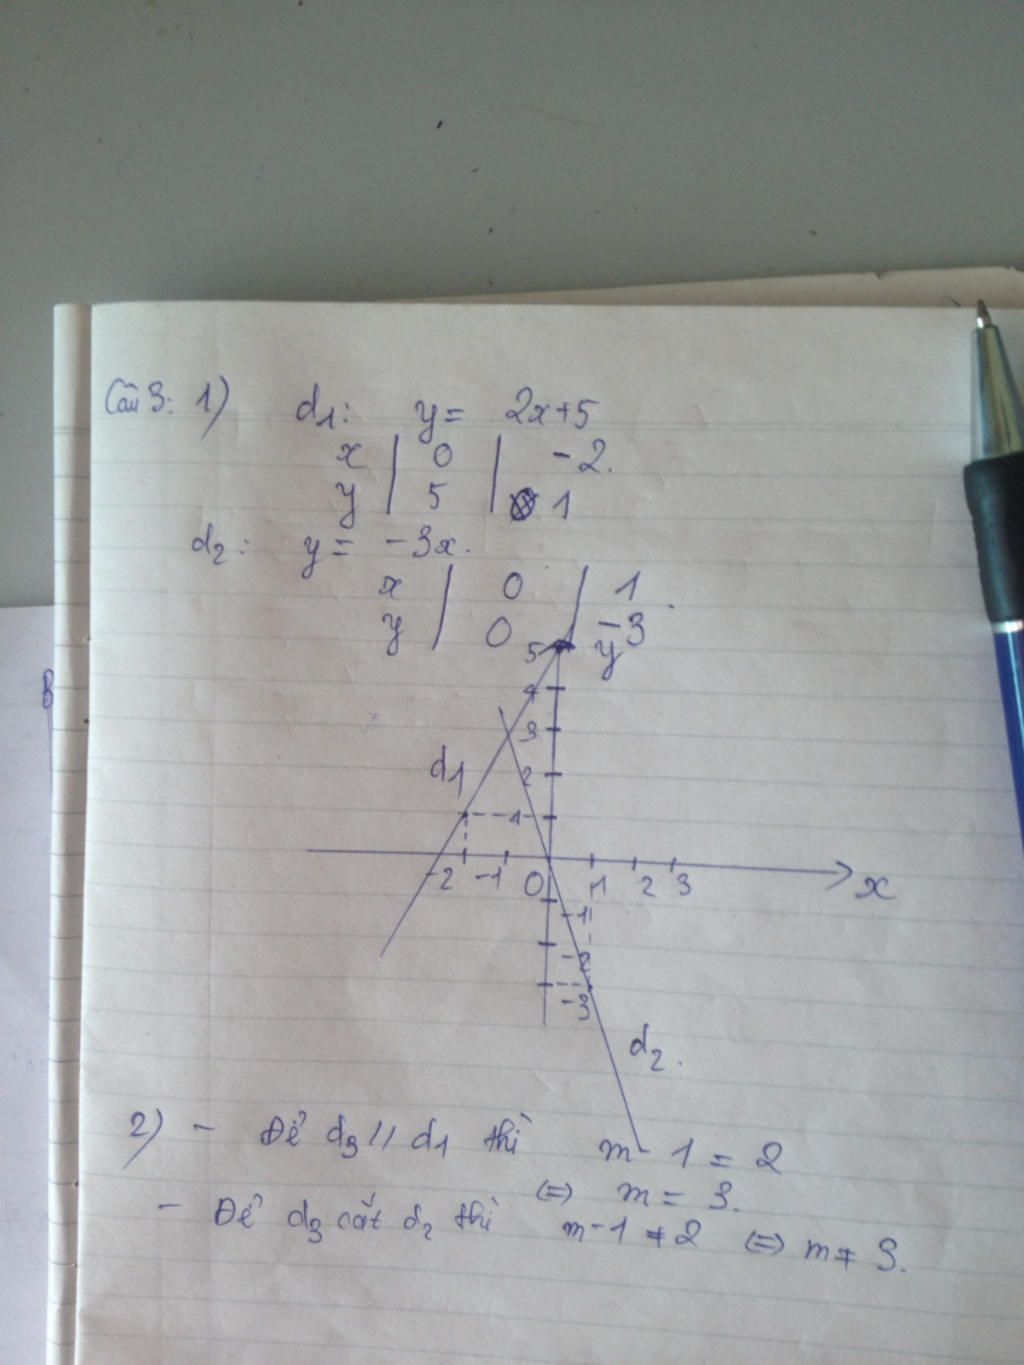 Câu 3: 1) d1: y = 2x+5
x | 0 | -2.
y | 5 | 1
d2: y = -3x.
x | 0 | 1
y | 0 | -3
5 y
4
3
d1 2
1
-2 -1 0 1 2 3 x
-1
-2
-3
d2.
2) - Để d3 // d1 thì m - 1 = 2
<=> m = 3.
- Để d3 cắt d2 thì m-1 ≠ 2 <=> m ≠ 3.